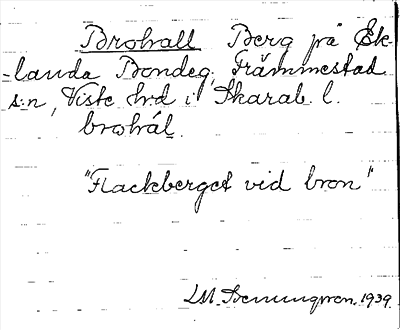 Brohall Berg på Ek-
landa Bondeg, Främmestad
s:n, Viste hrd i Skarab. l.
brohál.
"Flackberget vid bron"
1939